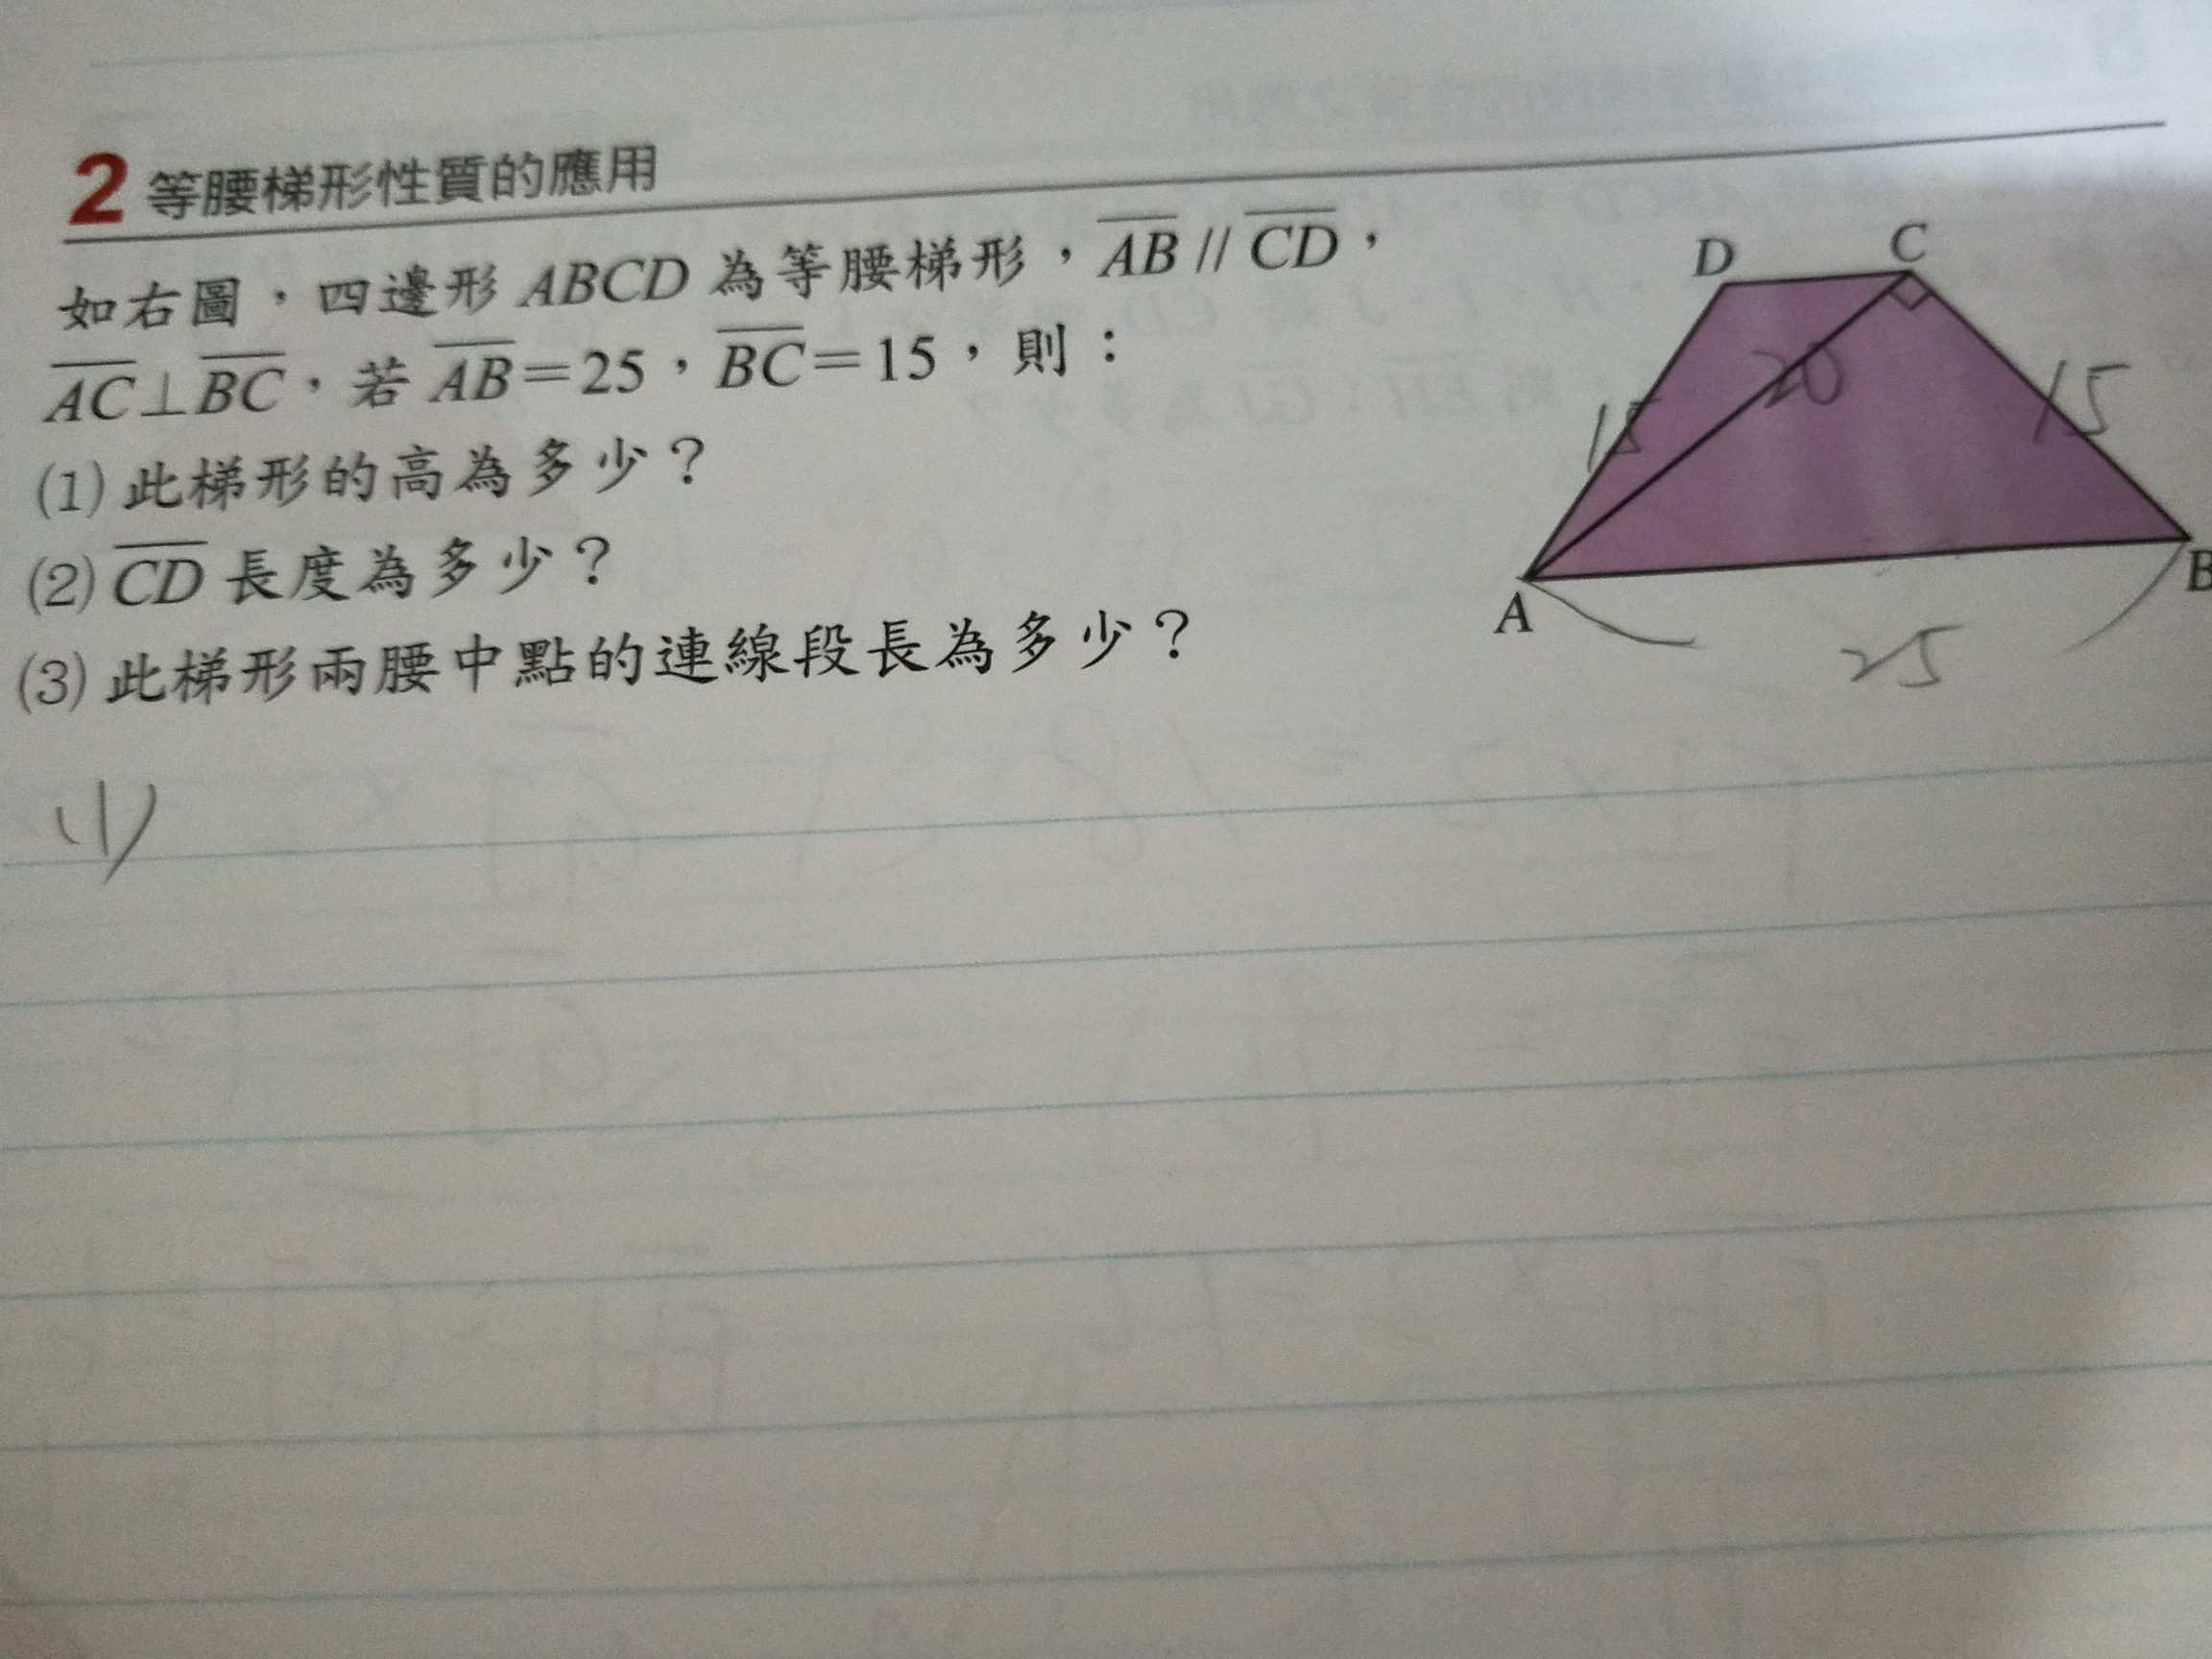 2 等腰梯形性質的應用
如右圖，四邊形 ABCD 為等腰梯形，AB // CD，
AC⊥BC，若 AB＝25，BC＝15，則：
(1) 此梯形的高為多少？
(2) CD 長度為多少？
(3) 此梯形兩腰中點的連線段長為多少？
D C
15 20 15
A B
25
(1)